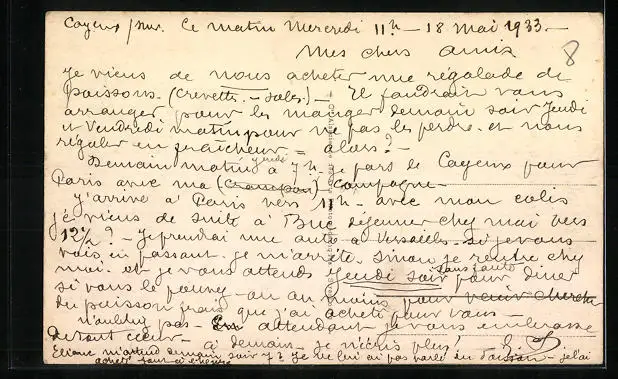 Cayeux s/mer. Ce matin Mercredi 11h - 18 mai 1933. -
Mes chers amis
8
je viens de nous acheter une régalade de
poissons. (crevettes. - soles.) - Il faudrait vous
arranger pour les manger demain soir Jeudi
et Vendredi matin pour ne pas les perdre. et nous
régaler en fraîcheur = alors? -
Demain matin jeudi à 7h. je pars le Cayeux pour
Paris avec ma (crampon) compagne -
j'arrive à Paris vers 11h - avec mon colis
je viens de suite à Buc déjeuner chez moi vers
12½ ? - je prendrai une auto à Versailles. si je vous
vois en passant. je m'arrête. sinon je rentre chez
moi. et je vous attends jeudi soir sans faute pour diner
si vous le pouvez - ou au moins pour venir chercher
du poisson frais que j'ai acheté pour vous -
n'oubliez pas - En attendant je vous embrasse
de tout cœur. - à demain. je n'écris plus! -
Eliane m'attend demain soir 7h je ne lui ai pas parlé du poisson - je l'ai
acheté